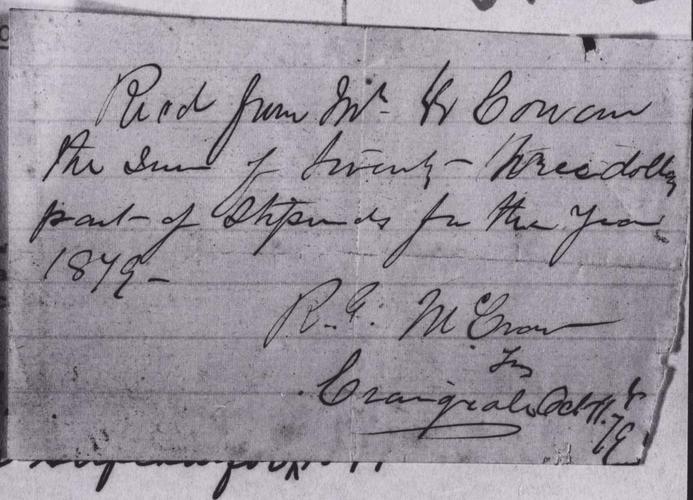 Recd from Mr. W Cowan
the Sum of twenty-three dollars
part of Stipends for the Year
1879-
R. G. McCraw
Oct 11. 79